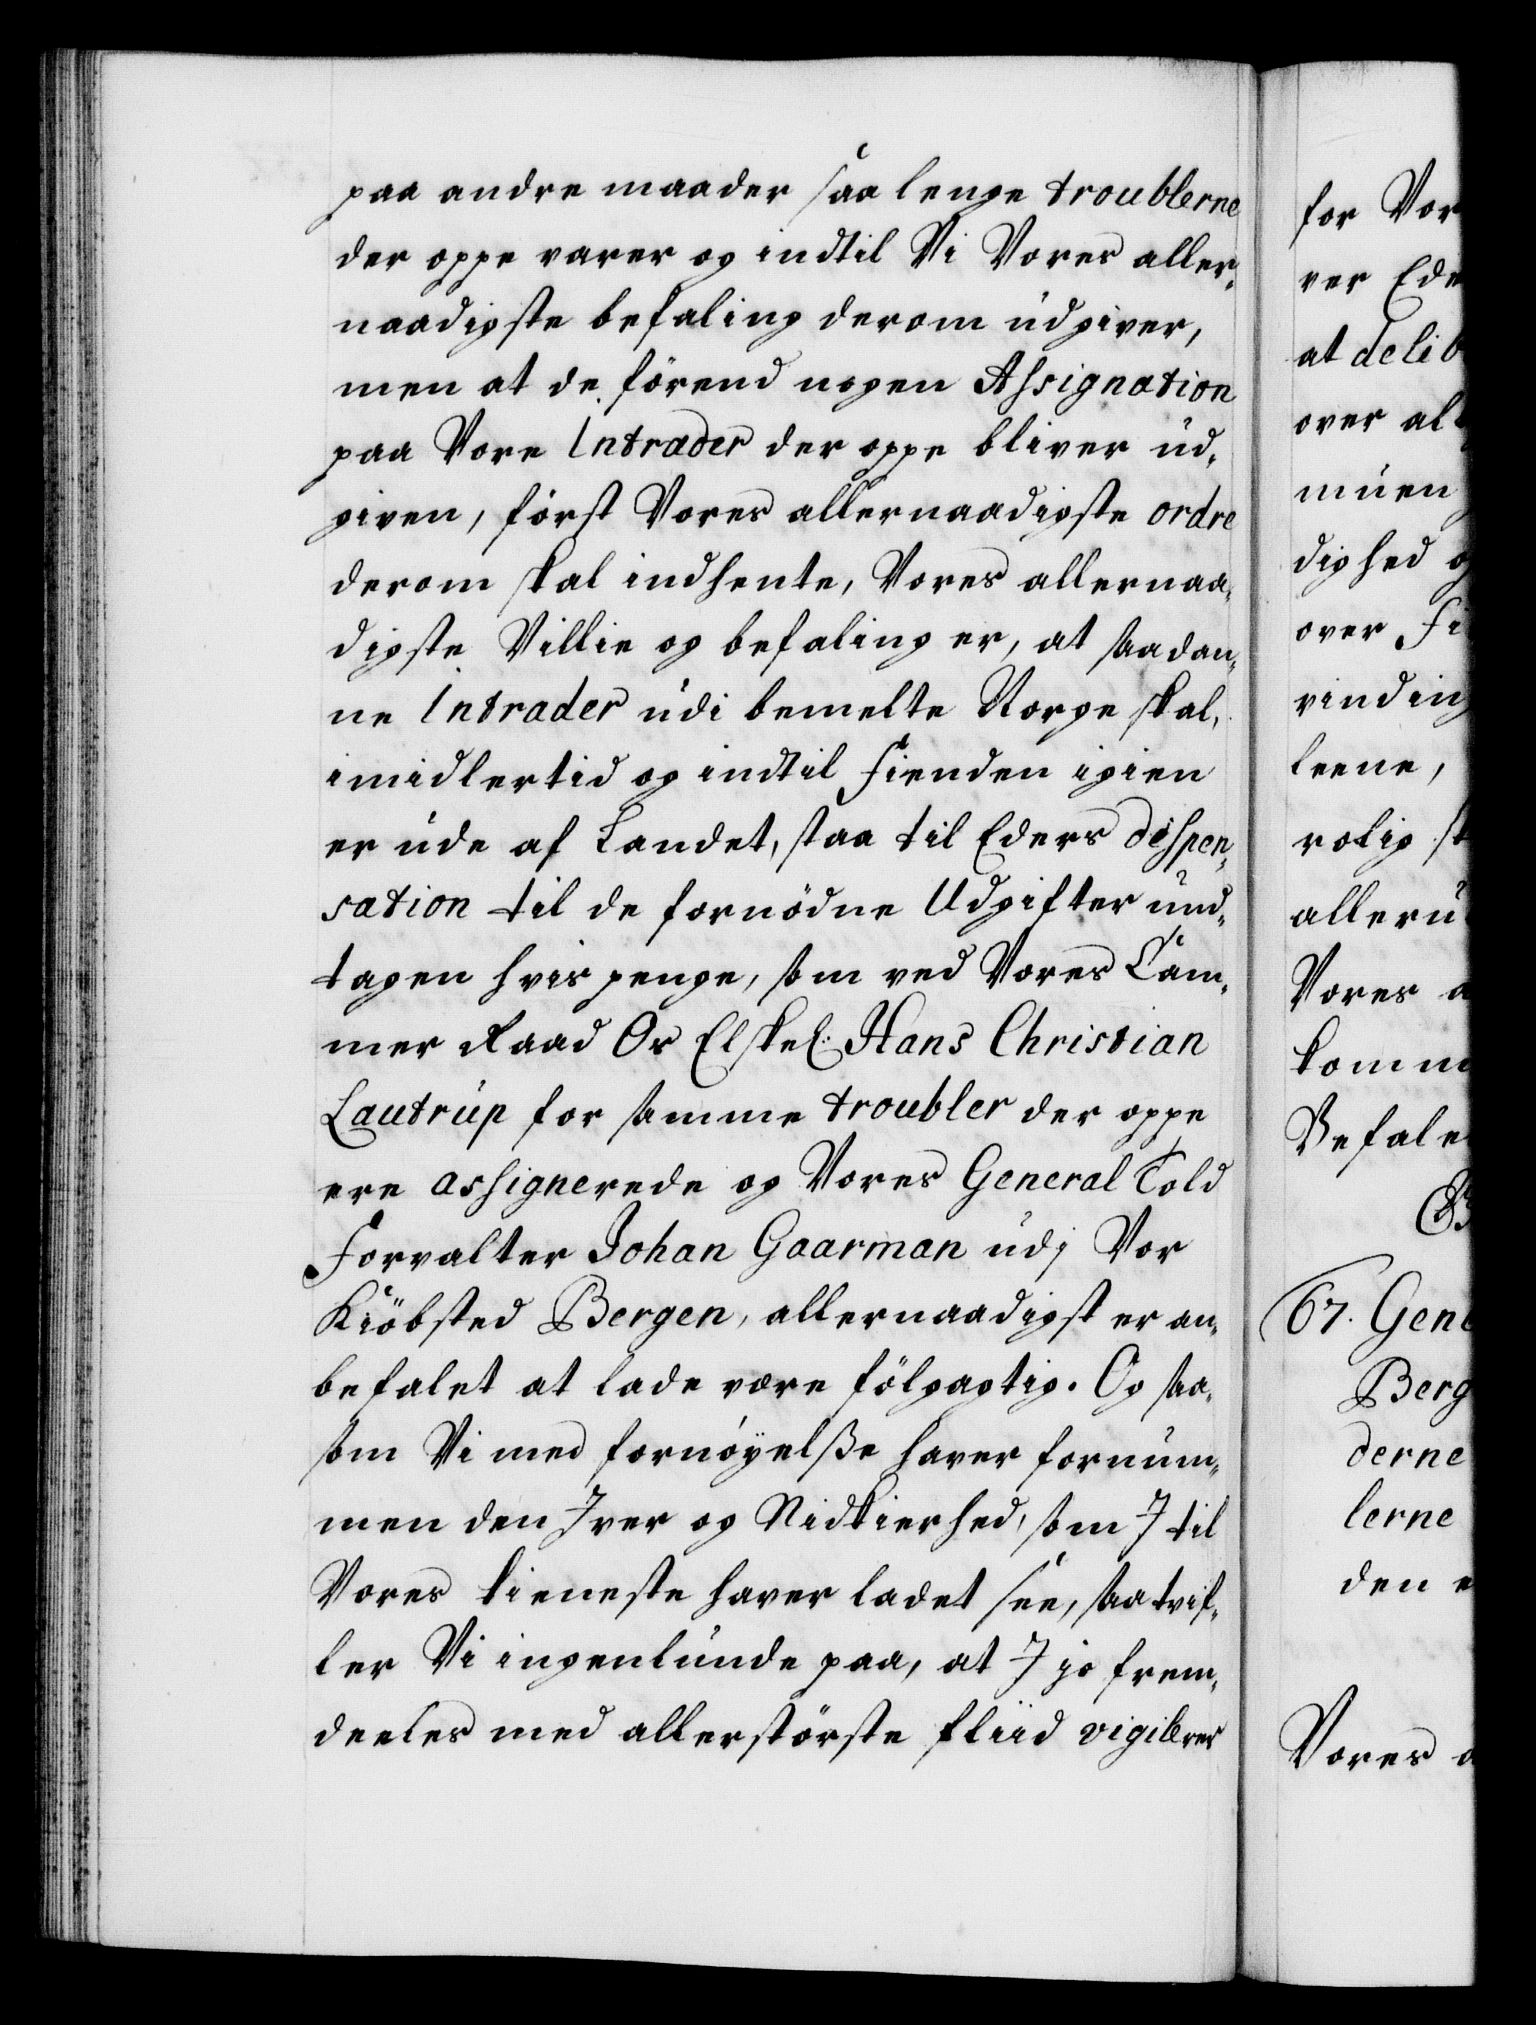 paa andre maader saa lenge troublerne
der oppe varer og indtil Vi Vores aller-
naadigste befaling derom udgiver,
men at de förend nogen Assignation
paa Vore Intrader der oppe bliver ud-
given, först Vores allernaadigste ordre
derom skal indhente, Vores allernaa-
digste Villie og befaling er, at saadan-
ne Intrader udi bemelte Norge skal,
imidlertid og indtil Fienden igien
er ude af Landet, staa til Eders dispen-
sation til de fornödne Udgifter und-
tagen hvis penge, som ved Vores Cam-
mer Raad Os Elskel: Hans Christian
Lautrup for samme troubler der oppe
ere assignerede og Vores General Told
Forvalter Johan Gaarman udj Vor
Kiöbsted Bergen, allernaadigst er an-
befalet at lade være fölgagtig. Og saa-
som Vi med fornöyelße haver fornum-
men den Iver og Nidkierhed, som I til
Vores tieneste haver ladet see, saa tvif-
ler Vi ingenlunde paa, at I jo frem-
deeles med allerstörste fliid vigilerer
for Vor
ver Ede
at delib
over al
muen
dighed o
over Fi
vinding
leene,
rolig st
alleru
Vores a
komm
Befale
67. Gene
Berg
derne
lerne
den e
Vores a